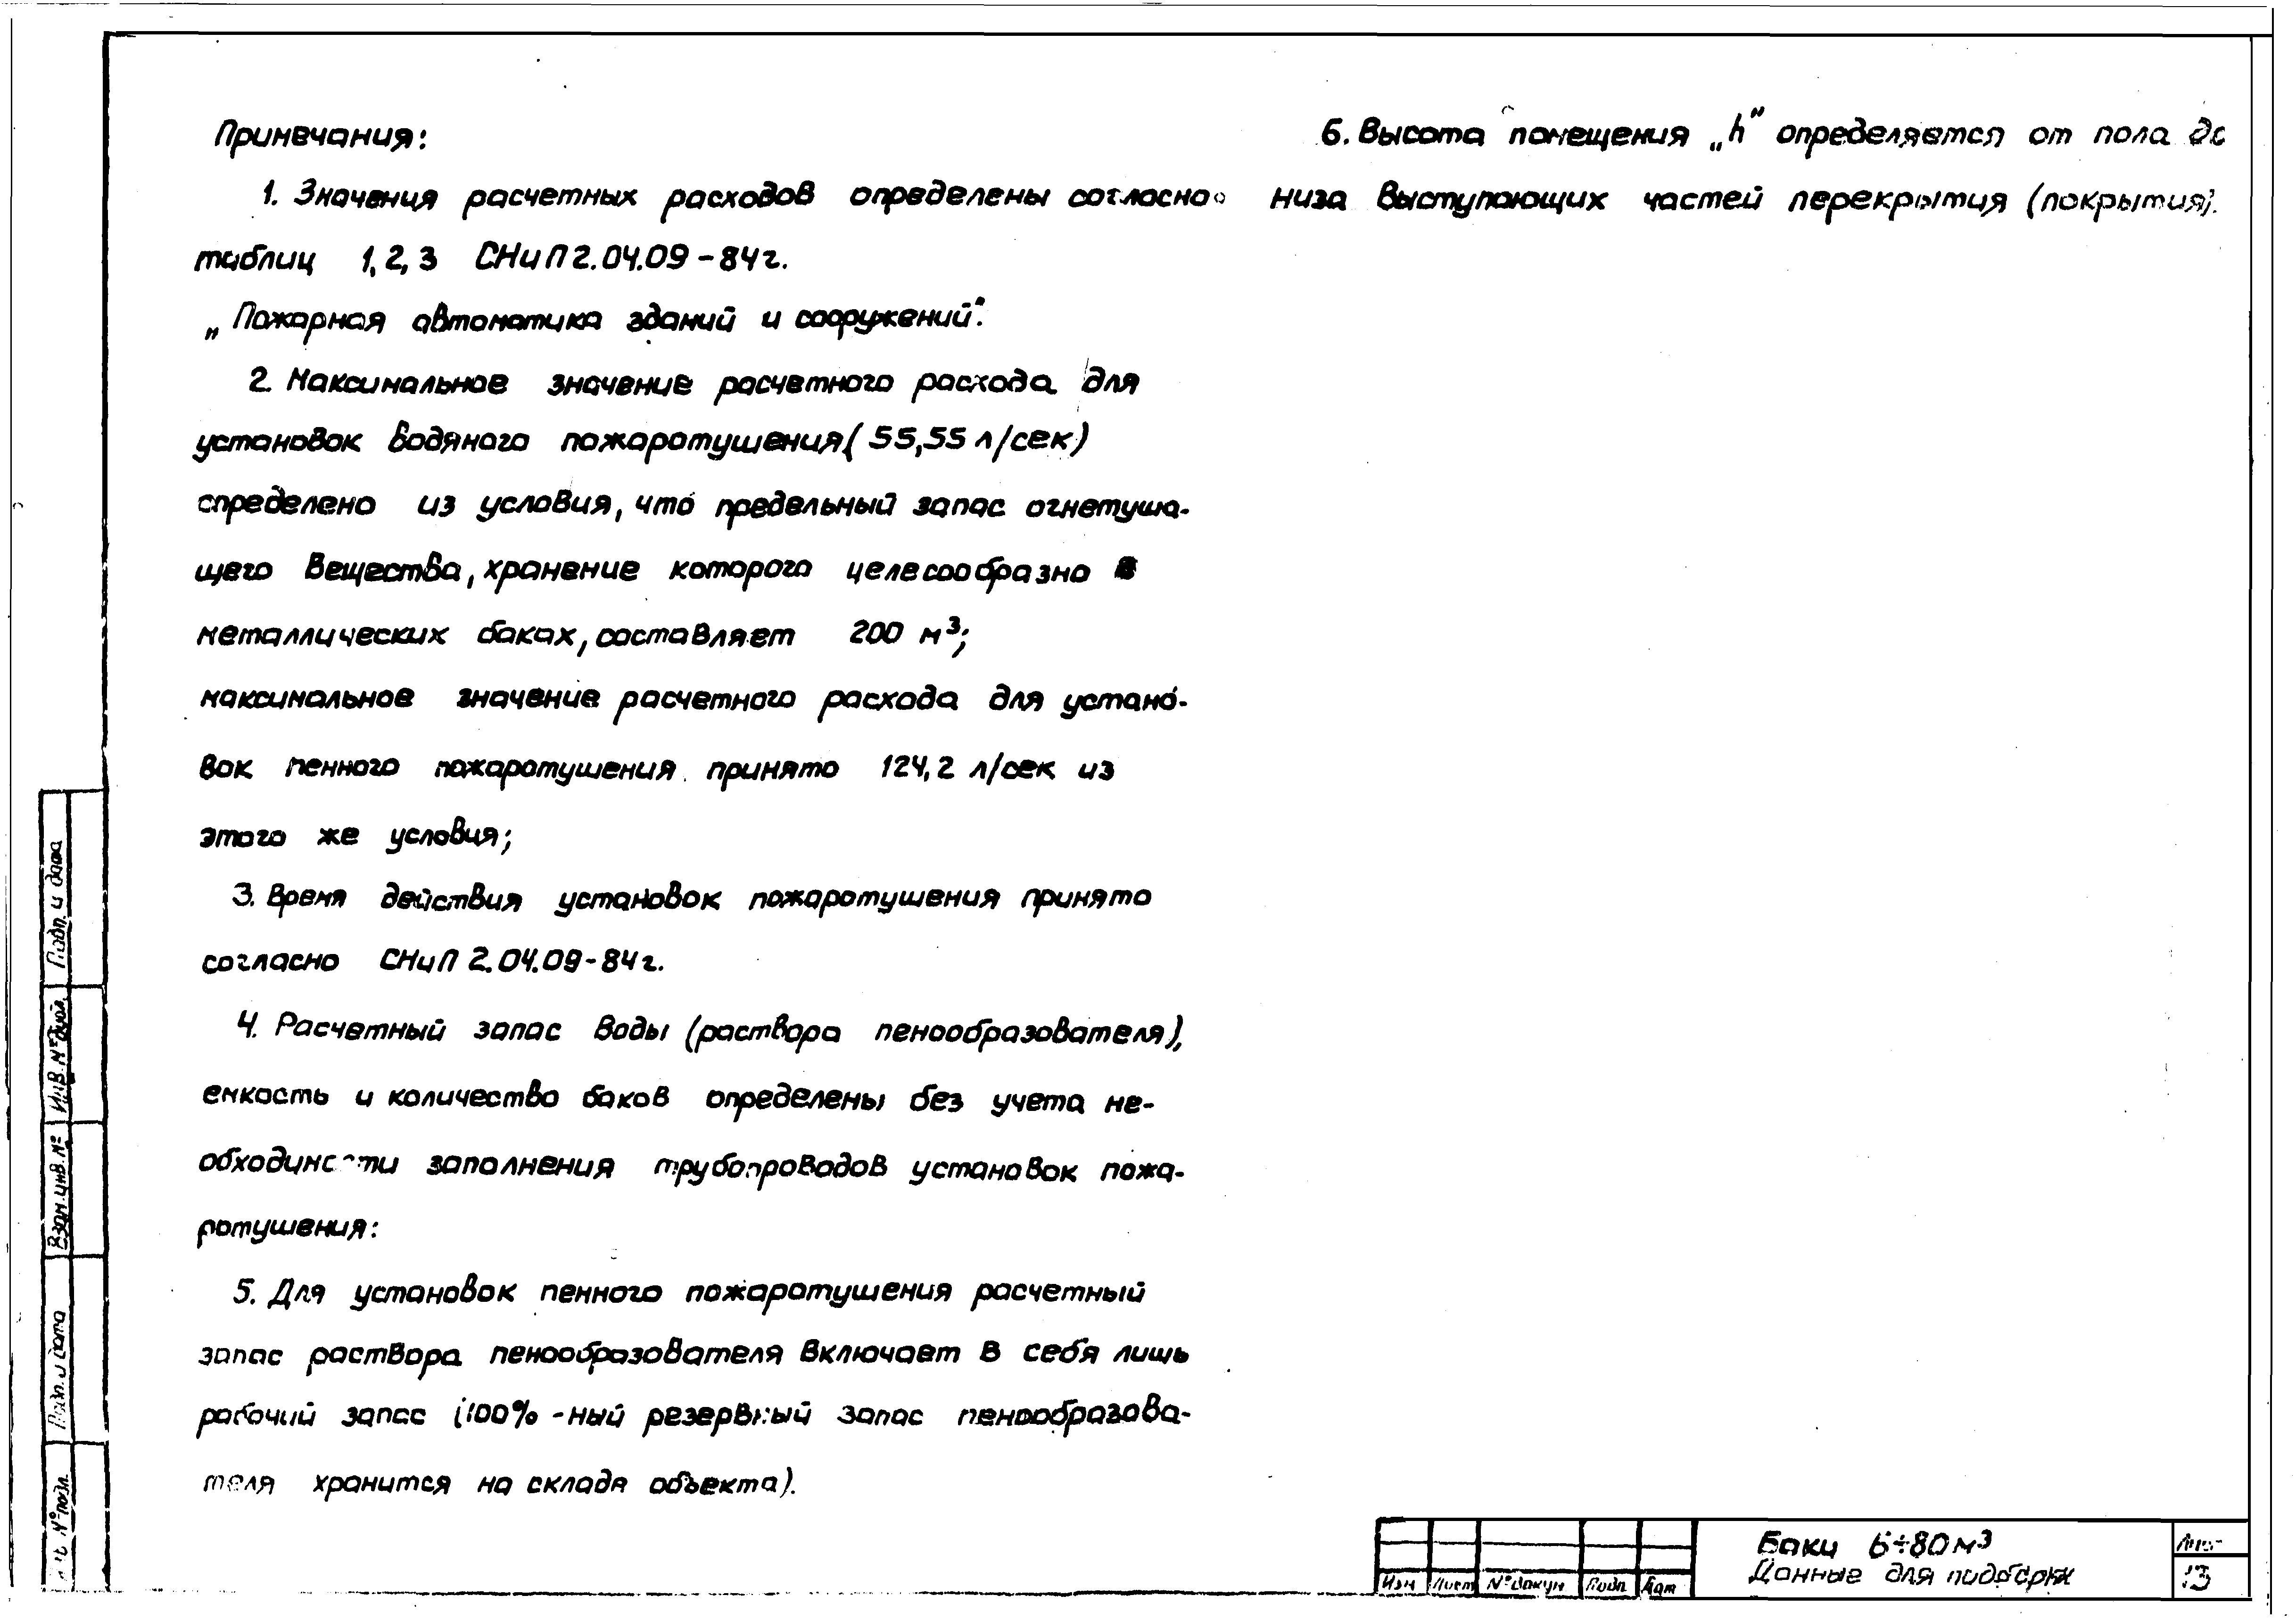 Примечания:
1. Значения расчетных расходов определены согласно
таблиц 1, 2, 3 СНиП 2.04.09-84г.
„Пожарная автоматика зданий и сооружений".
2. Максимальное значение расчетного расхода для
установок водяного пожаротушения (55,55 л/сек)
определено из условия, что предельный запас огнетуша-
щего вещества, хранение которого целесообразно в
металлических баках, составляет 200 м³;
максимальное значение расчетного расхода для устано-
вок пенного пожаротушения принято 124,2 л/сек из
этого же условия;
3. Время действия установок пожаротушения принято
согласно СНиП 2.04.09-84г.
4. Расчетный запас воды (раствора пенообразователя),
емкость и количество баков определены без учета не-
обходимости заполнения трубопроводов установок пожа-
ротушения:
5. Для установок пенного пожаротушения расчетный
запас раствора пенообразователя включает в себя лишь
рабочий запас (100%-ный резервный запас пенообразова-
теля хранится на складе объекта).
6. Высота помещения „h" определяется от пола до
низа выступающих частей перекрытия (покрытия).
Подп. и дата
Инв. № дубл.
Взам. инв. №
Подп. и дата
№ подл.
Изм Лист № докум Подп Дат
Баки 6÷80 м³
Данные для подборки
Лист
13